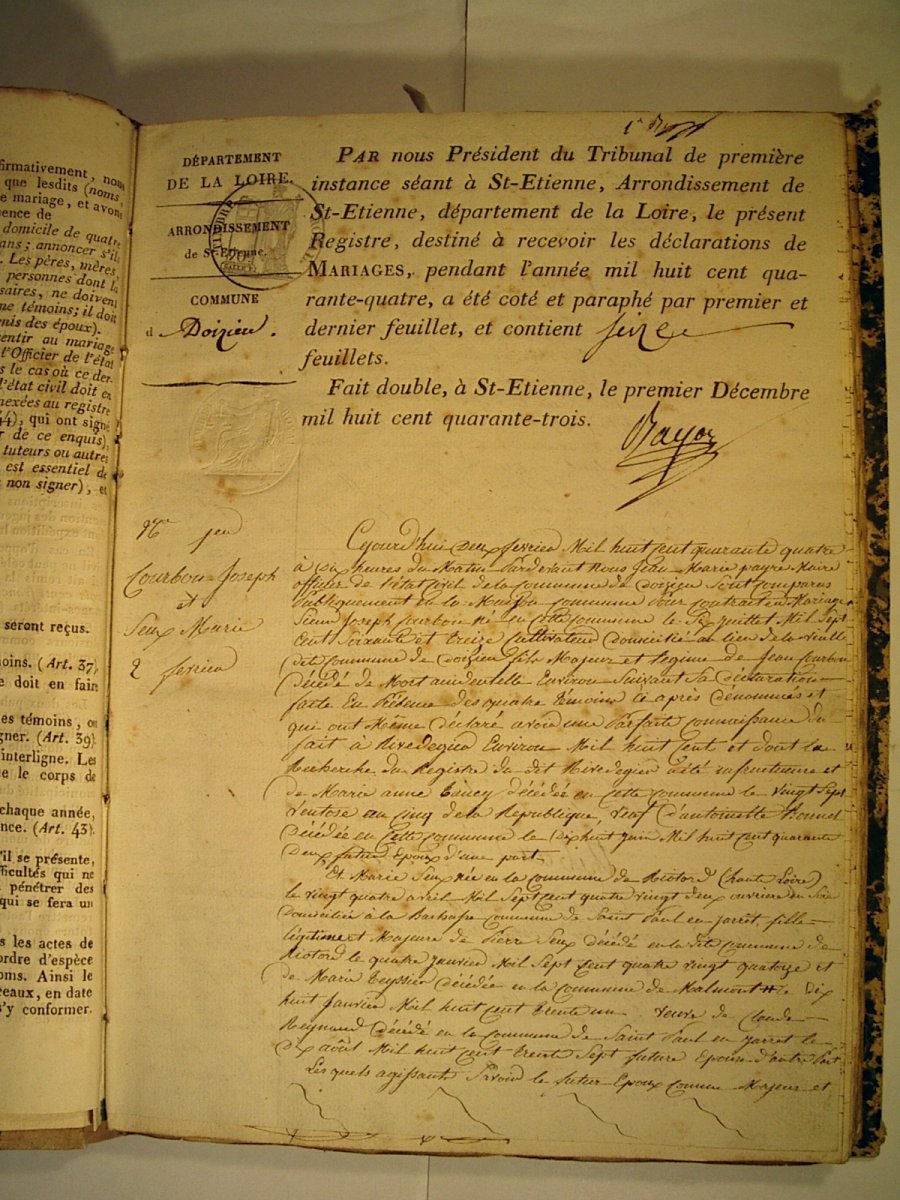 firmativement, nous
que lesdits (noms,
e mariage, et avons
ence de
domicile de quatre
ans; annoncer s'ils
. Les pères, mères,
personnes dont la
saires, ne doivent
ne témoins; il doit
enis des époux).
entir au mariage
l'Officier de l'état
s le cas où ce der-
l'état civil doit en
nexées au registre
44), qui ont signé
r de ce enquis),
tuteurs ou autres
est essentiel de
non signer), et
seront reçus.
moins. (Art. 37)
e doit en faire
es témoins, ou
gner. (Art. 39)
interligne. Les
e le corps de
chaque année,
nce. (Art. 43).
'il se présente,
ficultés qui ne
pénétrer des
qui se fera un
s les actes de
ordre d'espèce
oms. Ainsi le
eaux, en date
s'y conformer.
DÉPARTEMENT
DE LA LOIRE.
ARRONDISSEMENT
de St-Etienne.
COMMUNE
d Doizieu.
PAR nous Président du Tribunal de première
instance séant à St-Etienne, Arrondissement de
St-Etienne, département de la Loire, le présent
Registre, destiné à recevoir les déclarations de
MARIAGES, pendant l'année mil huit cent qua-
rante-quatre, a été coté et paraphé par premier et
dernier feuillet, et contient seize
feuillets.
Fait double, à St-Etienne, le premier Décembre
mil huit cent quarante-trois.
Courbon Joseph
et
Seux Marie
2 fevrier
Cejourd'hui deux fevrier Mil huit cent quarante quatre
à dix heures du Matin Pardevant nous Jean Marie payre Maire
officier de l'état civil de la commune de doizieu sont comparus
Publiquement en la Maison commune Pour contracter Mariage
Sieur Joseph Courbon né en cette commune le Six juillet Mil Sept
Cent Soixante et treize Cultivateur Domicilié au lieu de la vieille
dite commune de doizieu fils Majeur et legime de Jean Courbon
Décédé de Mort accidentelle Environ Suivant Sa Déclaration
faite En Présence des quatre témoins ci après Dénommés et
qui ont Même Déclaré avoir une Parfaite connaissance du
fait à Rivedegier Environ Mil huit Cent et dont la
Recherche du Registre du dit Rivedegier a été infructueuse et
de Marie anne Décédée en Cette commune le vingt Sept
Ventose an cinq de la Republique, veuf d'antoinette Bonnet
Décédée en Cette commune le dixhuit juin Mil huit Cent quarante
Deux futur Epoux d'une part
Et Marie Seux Née en la commune de Riotord (haute Loire)
le vingt quatre avril Mil Sept cent quatre vingt deux ouvrière en Soie
Domiciliée à la Barbasse commune de Saint Paul en jarret fille
légitime et Majeure de Pierre Seux Décédé en la dite commune de
Riotord le quatre janvier Mil Sept Cent quatre vingt quatorze et
de Marie Teyssier Décédée en la Commune de Malmont le Dix
huit Janvier Mil huit cent trente un veuve de Claude
Reynaud Décédé en la commune de Saint Paul en jarret le
Dix août Mil huit cent trente Sept future Epouse d'autre Part
Lesquels agissant Savoir le futur Epoux comme Majeur et